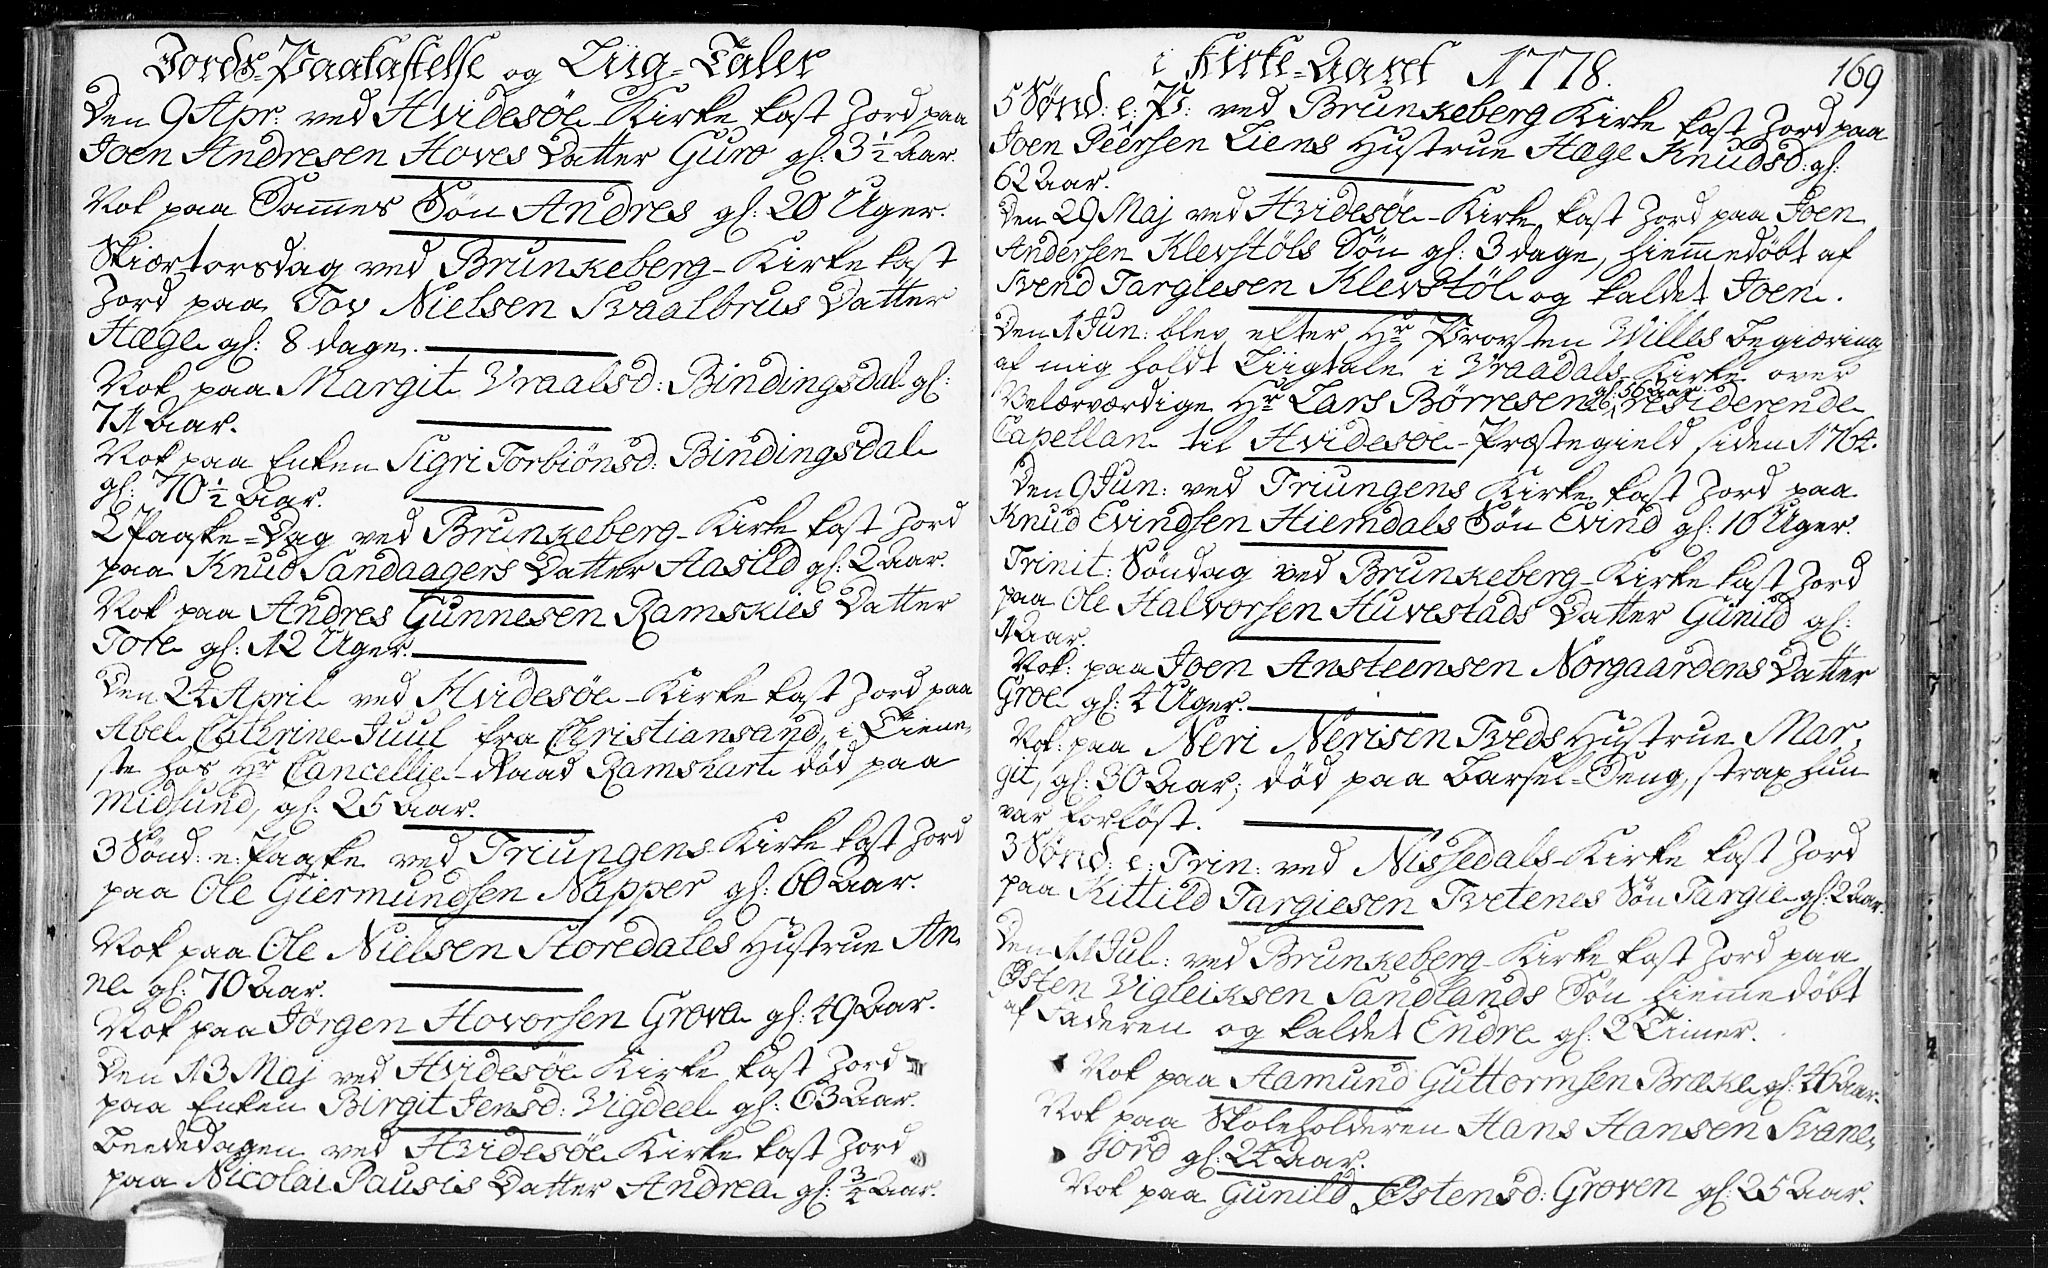 Jords-Paakastelse og Liig-Taler
Den 9 Apr: ved Hvidesøe Kirke kast Jord paa
Joen Andresen Hoves Datter Guro gl: 3 1/2 Aar.
Nok paa Sammes Søn Andres gl: 20 Uger.
Skiærtorsdag ved Brunkeberg-Kirke kast
Jord paa Tov Nielsen Kvaalbrus Datter
Hæge gl: 8 dage.
Nok paa Margit Vraalsd: Bindingsdal gl:
71 Aar.
Nok paa Enken Sigri Torbiønsd: Bindingsdal
gl: 70 1/2 Aar.
2 Paaske-Dag ved Brunkeberg-Kirke kast Jord
paa Knud Sandaagers Datter Aasild gl: 2 Aar.
Nok paa Andres Gunnesen Ramskies Datter
Tore gl: 12 Uger.
Den 24 April ved Hvidesøe-Kirke kast Jord paa
Abel Cathrine Juul fra Christiansand, i Tiene-
ste hos Hr Cancellie-Raad Ramshart død paa
Midsund, gl: 25 Aar.
3 Sønd: e: Paaske ved Triungens Kirke kast Jord
paa Ole Giermundsen Napper gl: 60 Aar.
Nok paa Ole Nielsen Storedales Hustrue An-
ne gl: 70 Aar.
Nok paa Jørgen Hovorsen Grova gl: 49 Aar.
Den 13 Maj ved Hvidesøe Kirke kast Jord
paa Enken Birgit Jensd: Vigdeel gl: 63 Aar.
Beededagen ved Hvidesøe Kirke kast Jord
paa Nicolai Pausis Datter Andrea gl: 3/4 Aar.
i Kirke-Aaret 1778.
169
5 Sønd: e: P: ved Brunkeberg Kirke kast Jord paa
Joen Peersen Liens Hustrue Hæge Knudsd: gl:
62 Aar.
Den 29 Maj ved Hvidesøe-Kirke kast Jord paa Joen
Andersen Klevstøls Søn gl: 3 dage, hiemmedøbt af
Svend Targiesen Klevstøl og kaldet Joen.
Den 1 Jun: blev efter Hr Provsten Willes Begiæring
af mig holdt Liigtale i Vraadals Kirke over
Velærværdige Hr Lars Børresen gl: 50 Aar, residerende
Capellan til Hvidesøe-Præstegield siden 1764.
Den 9 Jun: ved Triungens Kirke kast Jord paa
Knud Evindsen Hiemdals Søn Evind gl: 16 Uger.
Trinit: Søndag ved Brunkeberg-Kirke kast Jord
paa Ole Halvorsen Huvestads Datter Gunild gl:
1 Aar.
Nok: paa Joen Ansteensen Norgaardens Datter
Groe gl: 4 Uger.
Nok: paa Neri Nerisen Tveds Hustrue Mar-
git, gl: 30 Aar; død paa Barsel-Seng, strax hun
var forløst.
3 Sønd: e: Trin: ved Nissedals-Kirke kast Jord
paa Kittild Targiesen Tvetenes Søn Targie gl: 2 Aar.
Den 11 Jul: ved Brunkeberg-Kirke kast Jord paa
Østen Vigleiksen Sandlands Søn hiemmedøbt
af Faderen og kaldet Endre gl: 2 Timer.
Nok paa Aamund Guttormsen Bræke gl: 46 Aar.
Nok paa Skoleholderen Hans Hansen Kvane-
Jord gl: 24 Aar.
Nok paa Gunild Østensd: Groven gl: 25 Aar.